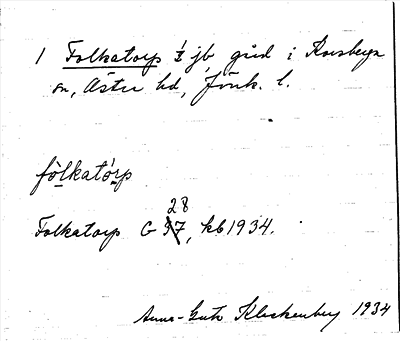 1 Folkatorp ½ jb gård i Korsberga
sn, Östra hd, Jönk. l.
fòlkatórp
28
Folkatorp G 37, kb 1934.
Anna-Greta Klackenberg 1934